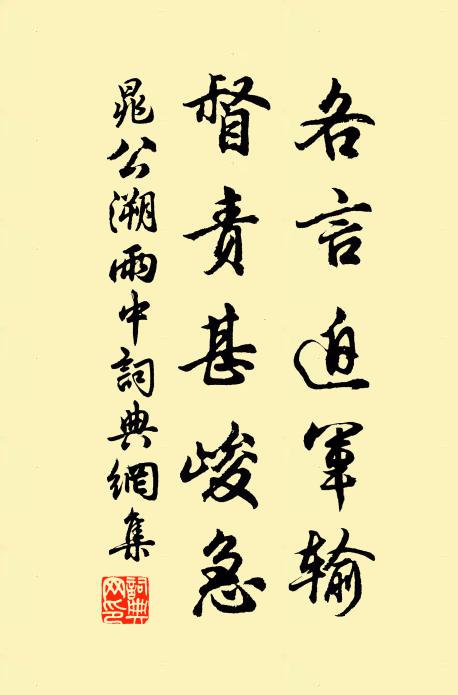 各言迫軍輸
督責甚峻急
晁公溯雨中詞典網集
詞典網印